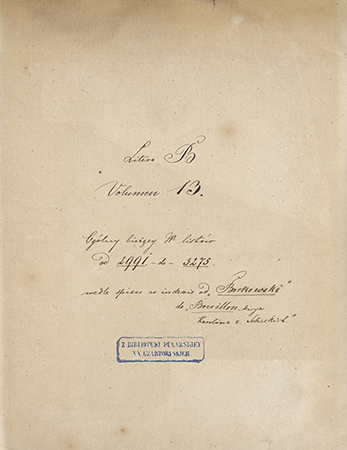 Litera B
Volumen 13.
Ogólny bieżący № listów
od 2991 - do - 3275.
wedle spisu w indexie od „Borkowski"
do „Bouillon
Karolina z Sobieskich"
Z BIBLIOTEKI PUŁAWSKIEY
XX CZARTORYSKICH